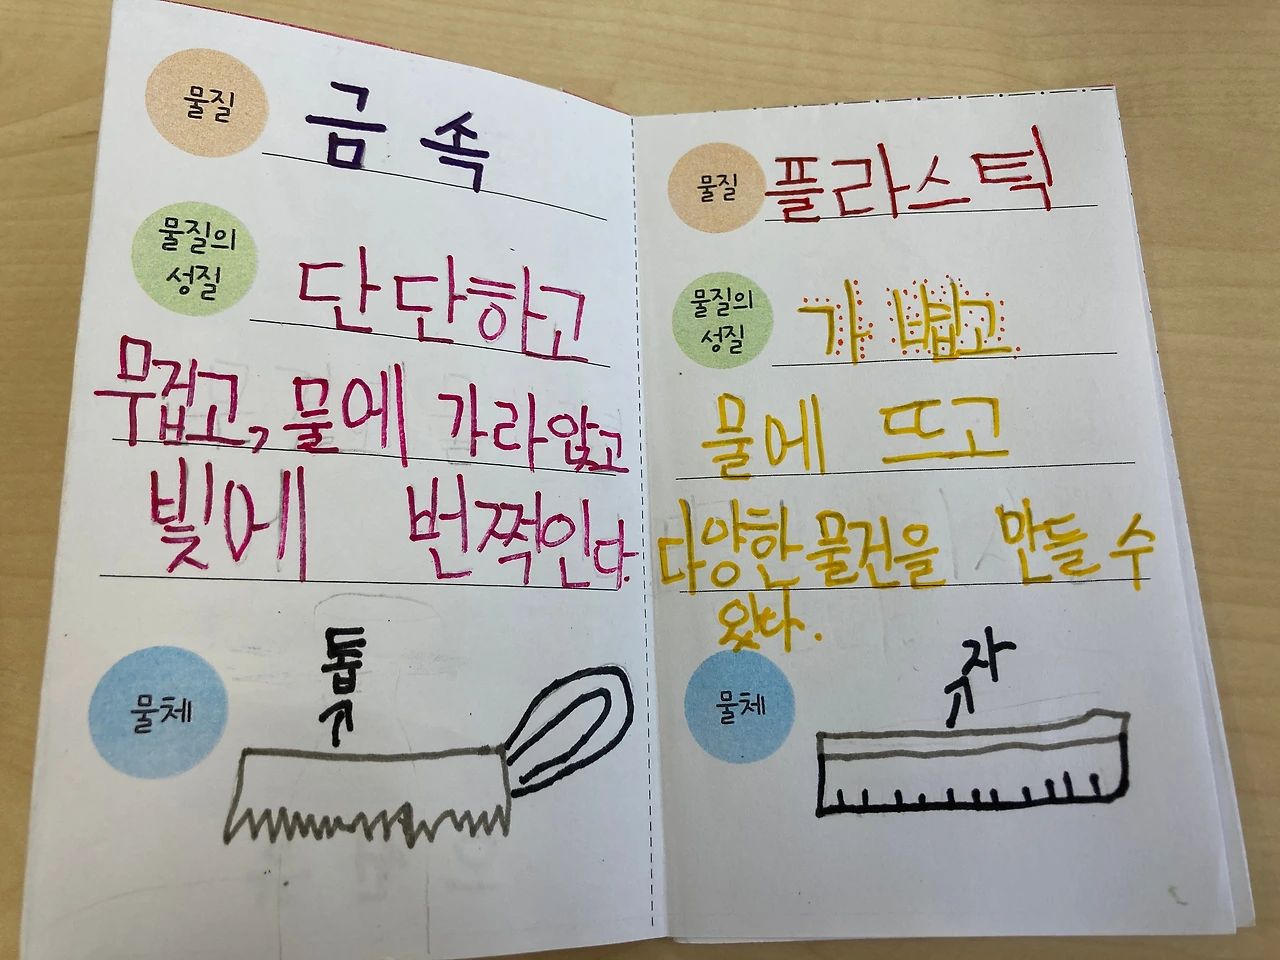 물질 금속
물질의
성질
단단하고
무겁고, 물에 가라앉고
빛에 번쩍인다.
톱
물체
물질 플라스틱
물질의
성질
가볍고
물에 뜨고
다양한 물건을 만들 수
있다.
자
물체